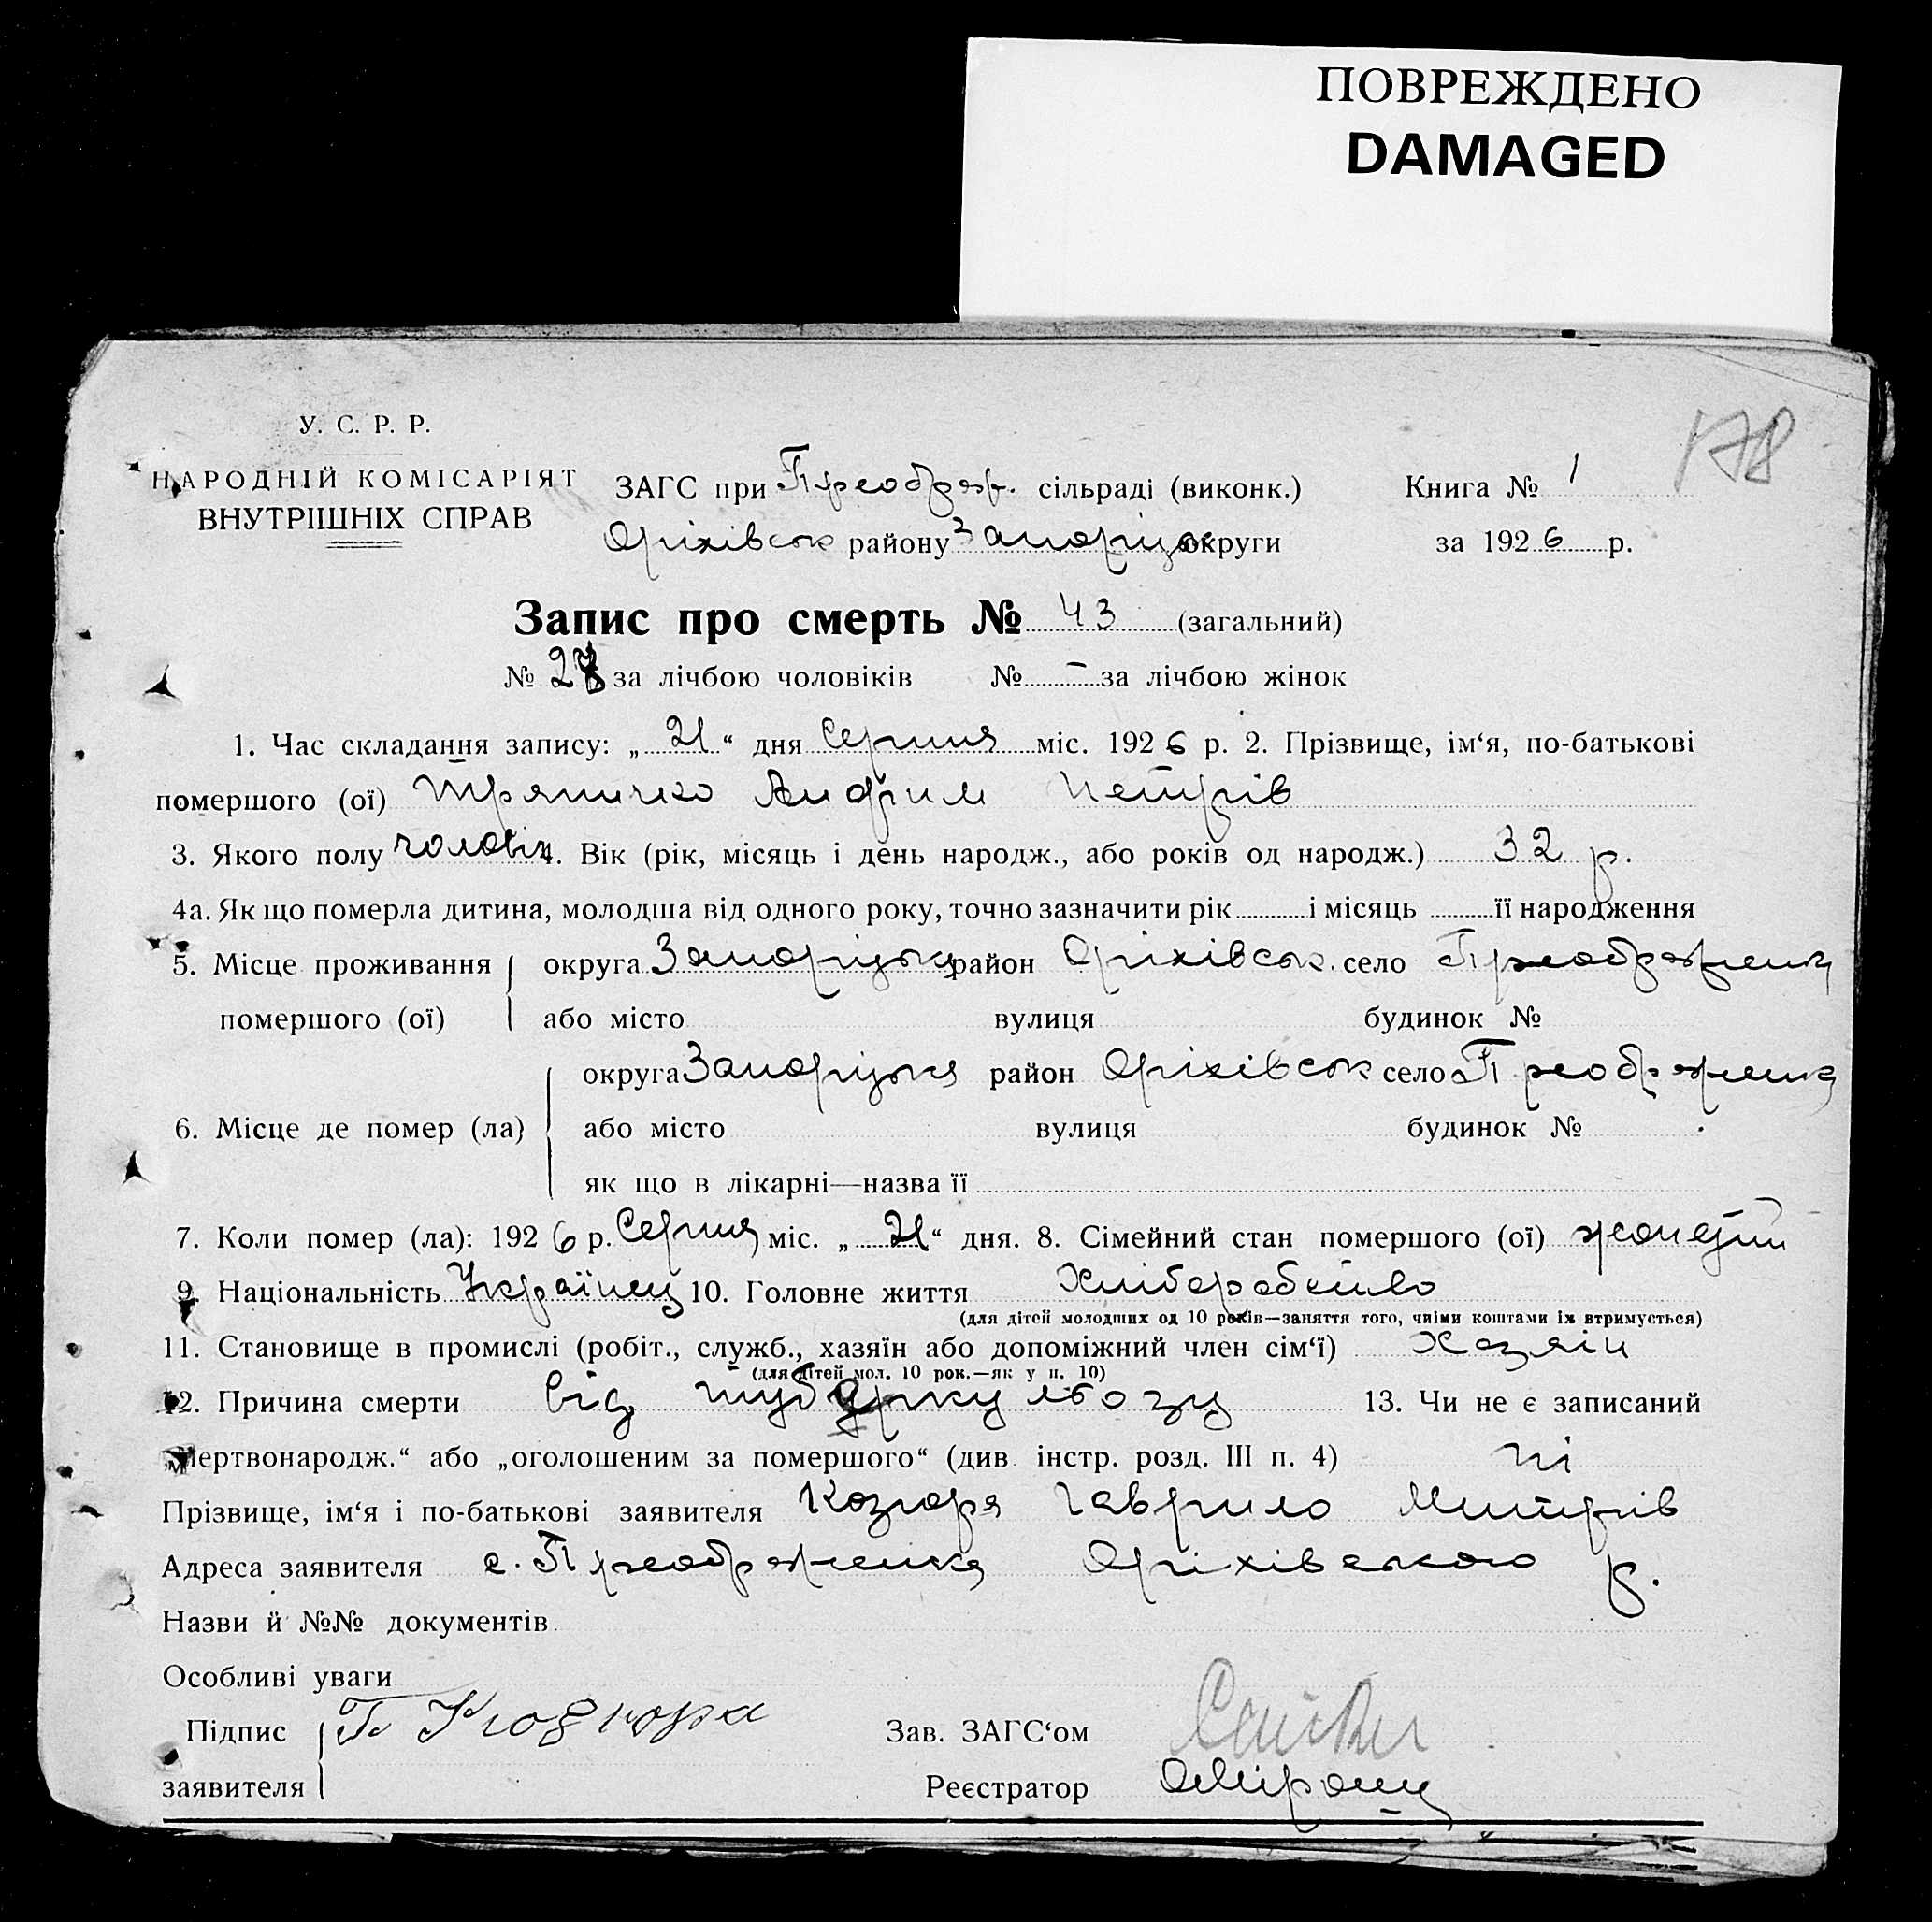 ПОВРЕЖДЕНО
DAMAGED
178
У. С. Р. Р.
НАРОДНІЙ КОМІСАРІЯТ
ВНУТРІШНІХ СПРАВ
ЗАГС при Преображ. сільраді (виконк.)
Оріхівськ району Запоріцьк округи
Книга № 1
за 1926 р.
Запис про смерть № 43 (загальний)
№ 27 за лічбою чоловіків № – за лічбою жінок
1. Час складання запису: „21“ дня Серпня міс. 1926 р. 2. Прізвище, ім‘я, по-батькові
помершого (ої) Тряпичко Андрій Петрів
3. Якого полу чоловіч 4. Вік (рік, місяць і день народж., або років од народж.) 32 р.
4а. Як що померла дитина, молодша від одного року, точно зазначити рік і місяць її народження
5. Місце проживання помершого (ої) округа Запоріцька район Оріхівськ. село Преображенка
або місто вулиця будинок №
6. Місце де помер (ла) округа Запоріцька район Оріхівськ село Преображенка
або місто вулиця будинок №
як що в лікарні—назва її
7. Коли помер (ла): 1926 р. Серпня міс. „21“ дня. 8. Сімейний стан помершого (ої) жонатий
9. Національність Українец 10. Головне життя Хліборобство
(для дітей молодших од 10 років—заняття того, чиїми коштами їх втримується)
11. Становище в промислі (робіт., служб., хазяїн або допоміжний член сім‘ї) Хазяін
(для дітей мол. 10 рок.—як у п. 10)
12. Причина смерти від тубуркульозу 13. Чи не є записаний
„мертвонародж.“ або „оголошеним за помершого“ (див. інстр. розд. III п. 4) ні
Прізвище, ім‘я і по-батькові заявителя Козюра Гаврило Митрів
Адреса заявителя с. Преображенка Оріхівського р.
Назви й №№ документів
Особливі уваги
Підпис заявителя Г. Козюра
Зав. ЗАГС‘ом
Реєстратор